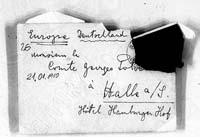 Europa Deutschland
monsieur le
Comte Georges
à
Halle a/S.
Hôtel Hamburger Hof